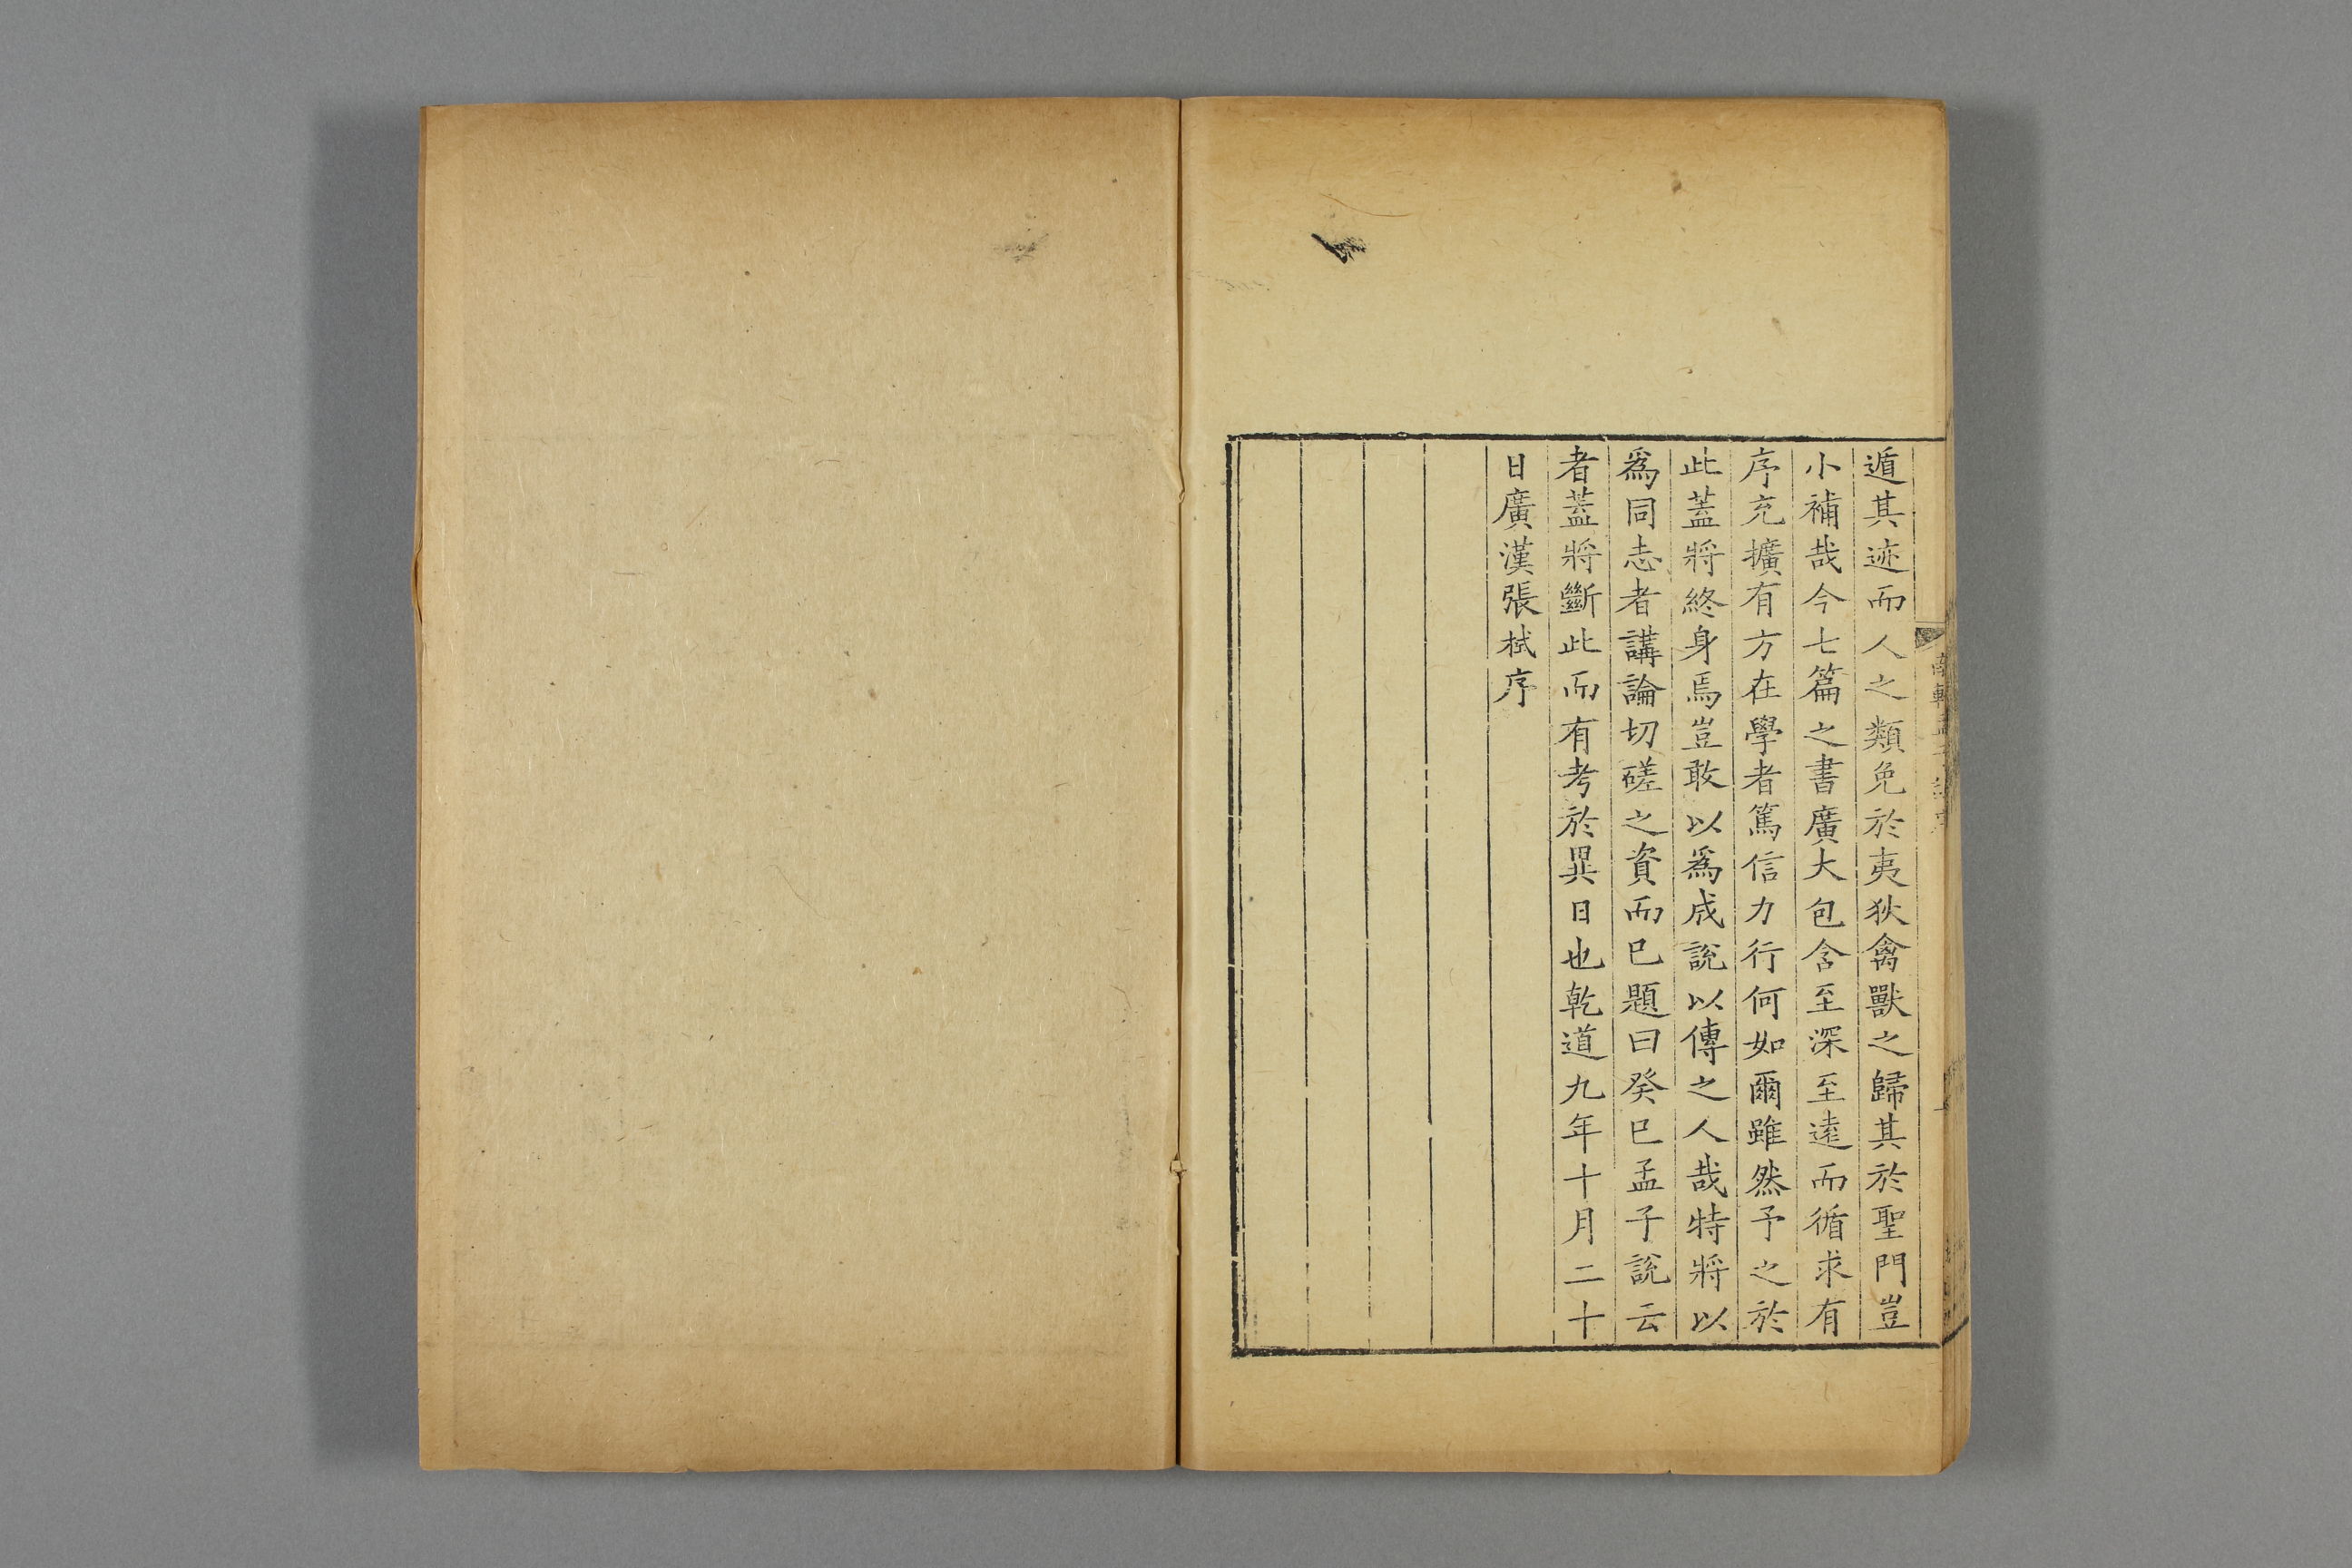 遁其迹而人之類免於夷狄禽獸之歸其於聖門豈
小補哉今七篇之書廣大包含至深至遠而循求有
序充擴有方在學者篤信力行何如爾雖然予之於
此蓋將終身焉豈敢以爲成說以傳之人哉特將以
爲同志者講論切磋之資而已題曰癸巳孟子說云
者蓋將斷此而有考於異日也乾道九年十月二十
日廣漢張栻序